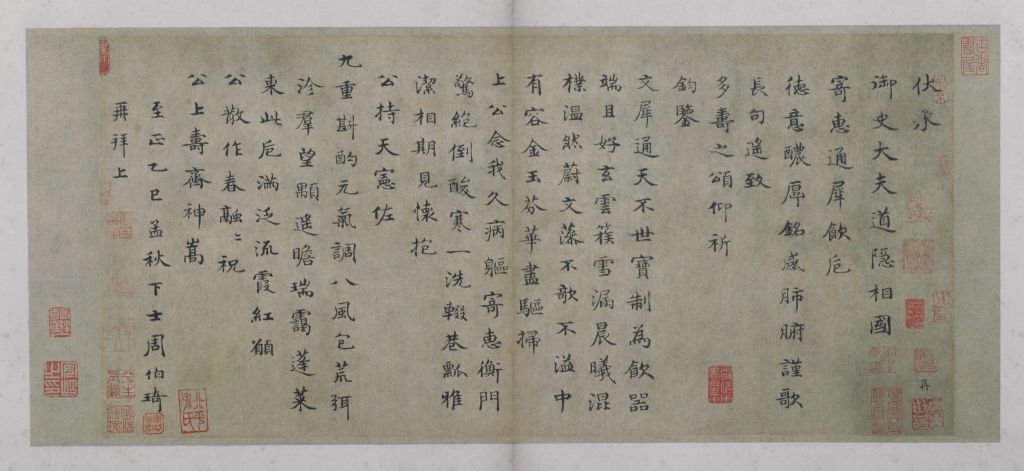 伏承
御史大夫道隐相國
寄惠通犀飲卮
德意醲厚銘感肺腑謹歌
長句遥致
多壽之頌仰祈
鈞鑒
文犀通天不世寶制為飲器
端且好玄雲簇雪漏晨曦混
樸温然蔚文藻不歌不溢中
有容金玉芬華盡驅掃
上公念我久病軀寄惠衡門
驚絶倒酸寒一洗輟巷瓢雅
潔相期見懷抱
公持天憲佐
九重斟酌元氣調八風包荒弭
沴羣望顒遥瞻瑞靄蓬萊
東此卮滿泛流霞紅願
公散作春融〻祝
公上壽齊神嵩
至正乙巳孟秋下士周伯琦
再拜上